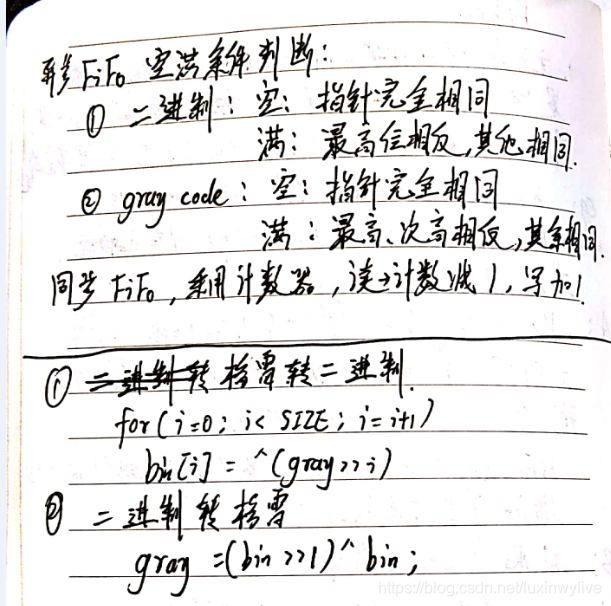 异步FiFo 空满条件判断:
① 二进制: 空: 指针完全相同
满: 最高位相反,其他相同.
② gray code: 空: 指针完全相同
满: 最高、次高相反,其余相同.
同步FiFo, 采用计数器, 读→计数减1, 写加1.
① 二进制转格雷转二进制.
for(i=0; i< SIZE; i=i+1)
bin[i] = ^(gray>>i)
② 二进制转格雷
gray =(bin >>1)^ bin;
https://blog.csdn.net/luxinwylive